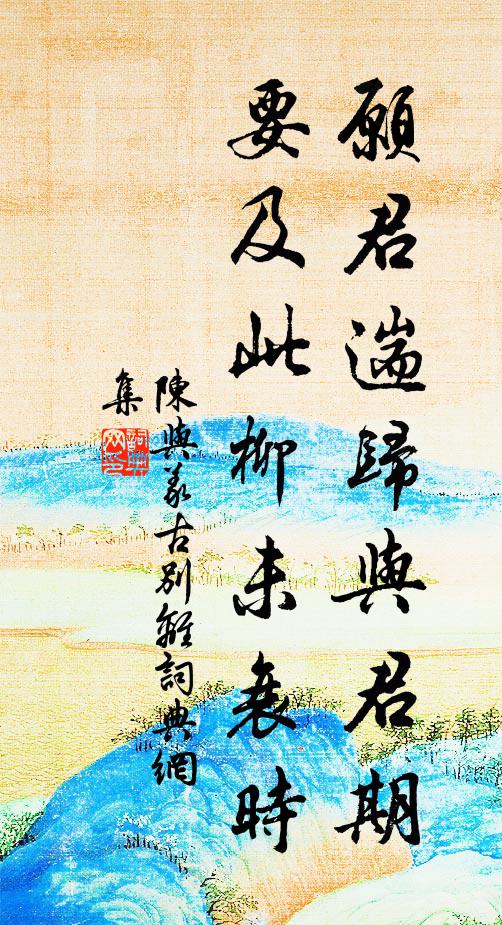 願君遄歸與君期
要及此柳未衰時
陳與義古別離詞典網
集